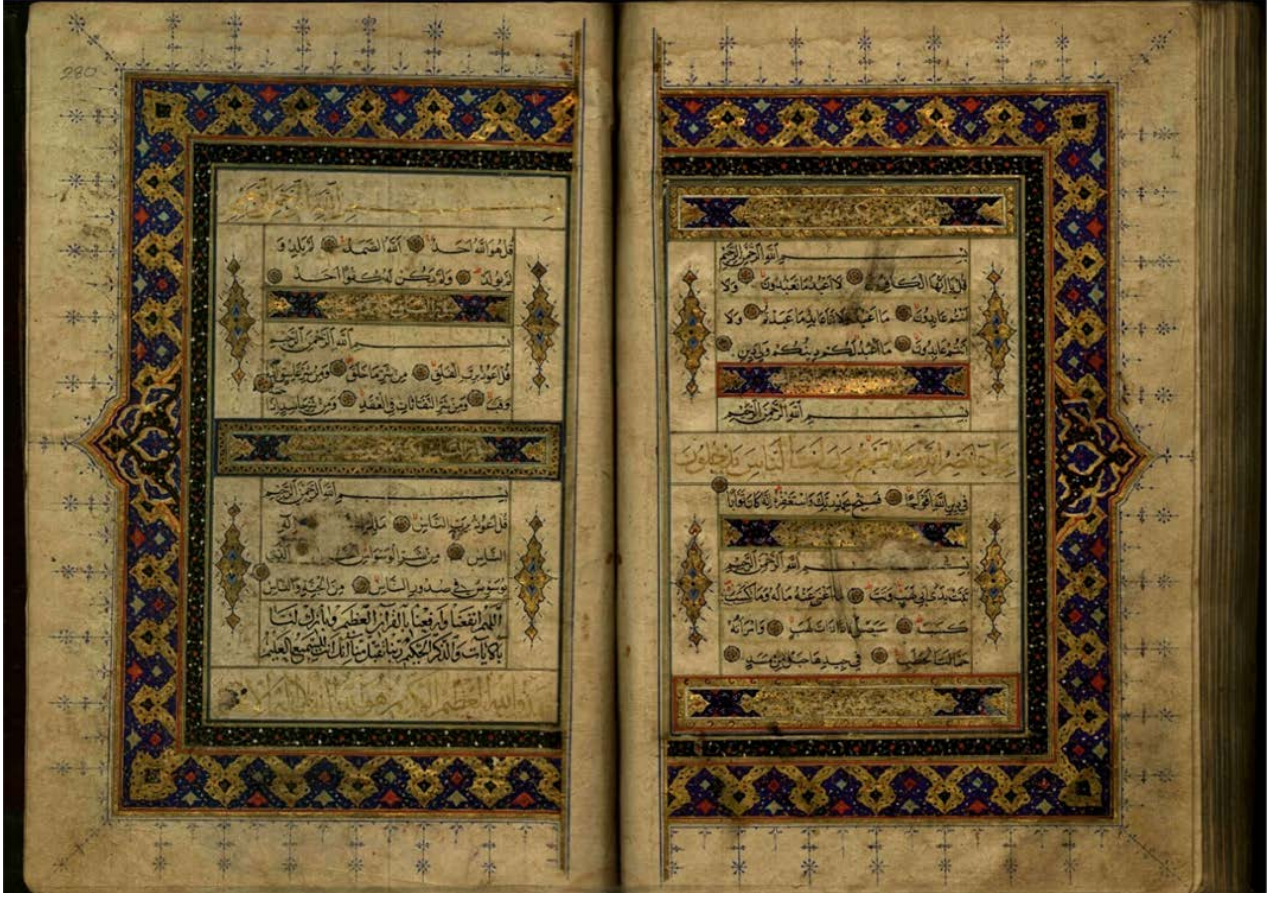 بسم الله الرحمن الرحيم
قل يا أيها الكافرون لا أعبد ما تعبدون ولا
أنتم عابدون ما أعبد ولا أنا عابد ما عبدتم ولا
أنتم عابدون ما أعبد لكم دينكم ولي دين
بسم الله الرحمن الرحيم
إذا جاء نصر الله والفتح ورأيت الناس يدخلون
في دين الله أفواجا فسبح بحمد ربك واستغفره إنه كان توابا
بسم الله الرحمن الرحيم
تبت يدا أبي لهب وتب ما أغنى عنه ماله وما كسب
سيصلى نارا ذات لهب وامرأته
حمالة الحطب في جيدها حبل من مسد
بسم الله الرحمن الرحيم
قل هو الله أحد الله الصمد لم يلد و
لم يولد ولم يكن له كفوا أحد
بسم الله الرحمن الرحيم
قل أعوذ برب الفلق من شر ما خلق ومن شر غاسق إذا
وقب ومن شر النفاثات في العقد ومن شر حاسد إذا
بسم الله الرحمن الرحيم
قل أعوذ برب الناس ملك إله
الناس من شر الوسواس الذي
يوسوس في صدور الناس من الجنة والناس
اللهم انفعنا وارفعنا بالقرآن العظيم وبارك لنا
بالآيات والذكر الحكيم ربنا تقبل منا إنك أنت السميع العليم
الله العظيم
280